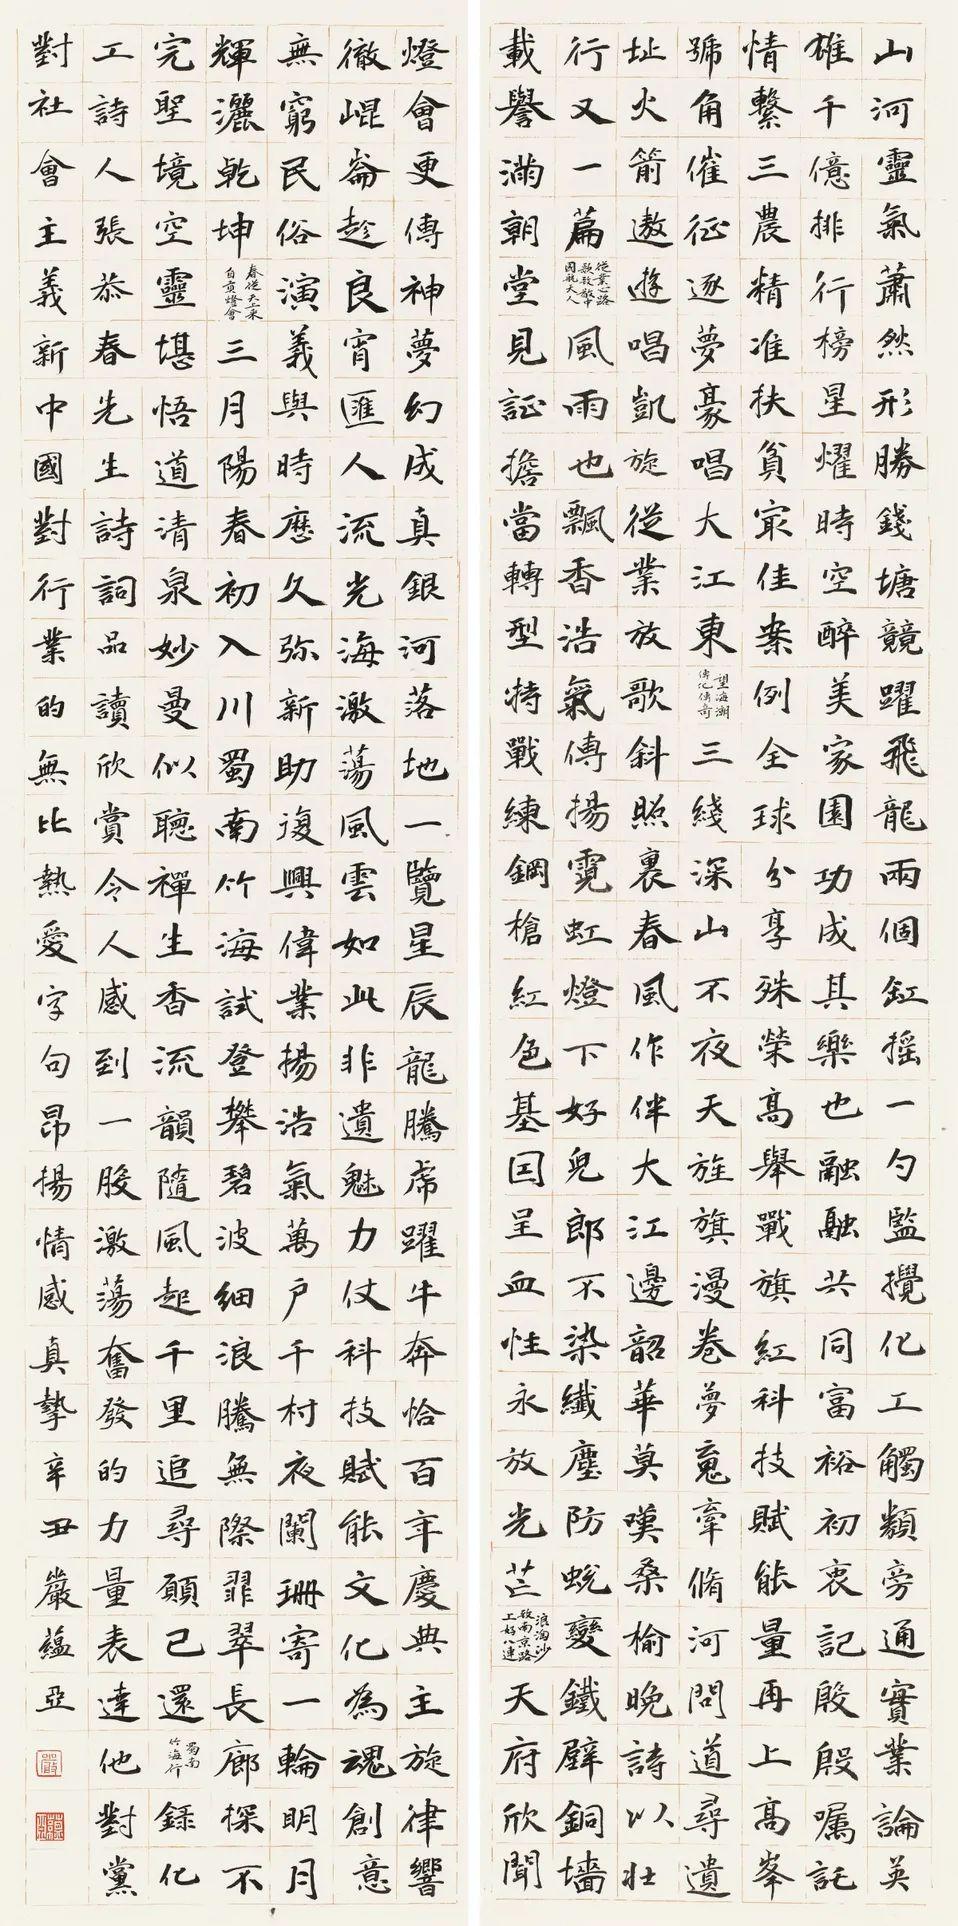 山河靈氣蕭然形勝錢塘競躍飛龍兩個缸搖一勺監攪化工觸類旁通實業論英
雄千億排行榜星耀時空醉美家園功成其樂也融融共同富裕初衷記殷殷囑託
情繫三農精准扶貧冣佳案例全球分享殊榮高舉戰旗紅科技賦能量再上高峯
號角催征逐夢豪唱大江東
望海潮
傳化傳奇
三綫深山不夜天旌旗漫卷夢䰟牽脩河問道尋遺
址火箭遨遊唱凱旋從業放歌斜照裏春風作伴大江邊韶華莫嘆桑榆晚詩以壯
行又一篇
從業心路
歌致敬中
國航天人
風雨也飄香浩氣傳揚霓虹燈下好兒郎不染纖塵防蛻變鐵壁銅墻
載譽滿朝堂見証擔當轉型特戰練鋼槍紅色基因呈血性永放光芒
浪淘沙
致南京路
上好八連
天府欣聞
燈會更傳神夢幻成真銀河落地一覽星辰龍騰虎躍牛奔恰百年慶典主旋律響
徹崐崙趁良宵匯人流光海激蕩風雲如此非遺魅力仗科技賦能文化為魂創意
無窮民俗演義與時歷久弥新助復興偉業揚浩氣萬户千村夜闌珊寄一輪明月
輝灑乾坤
春從天上來
自貢燈會
三月陽春初入川蜀南竹海試登攀碧波細浪騰無際翡翠長廊探不
完聖境空靈堪悟道清泉妙曼似聽禪生香流韻隨風起千里追尋願已還
蜀南
竹海行
錄化
工詩人張恭春先生詩詞品讀欣賞令人感到一股激蕩奮發的力量表達他對黨
對社會主義新中國對行業的無比熱愛字句昂揚情感真摯辛丑嚴蘊亞